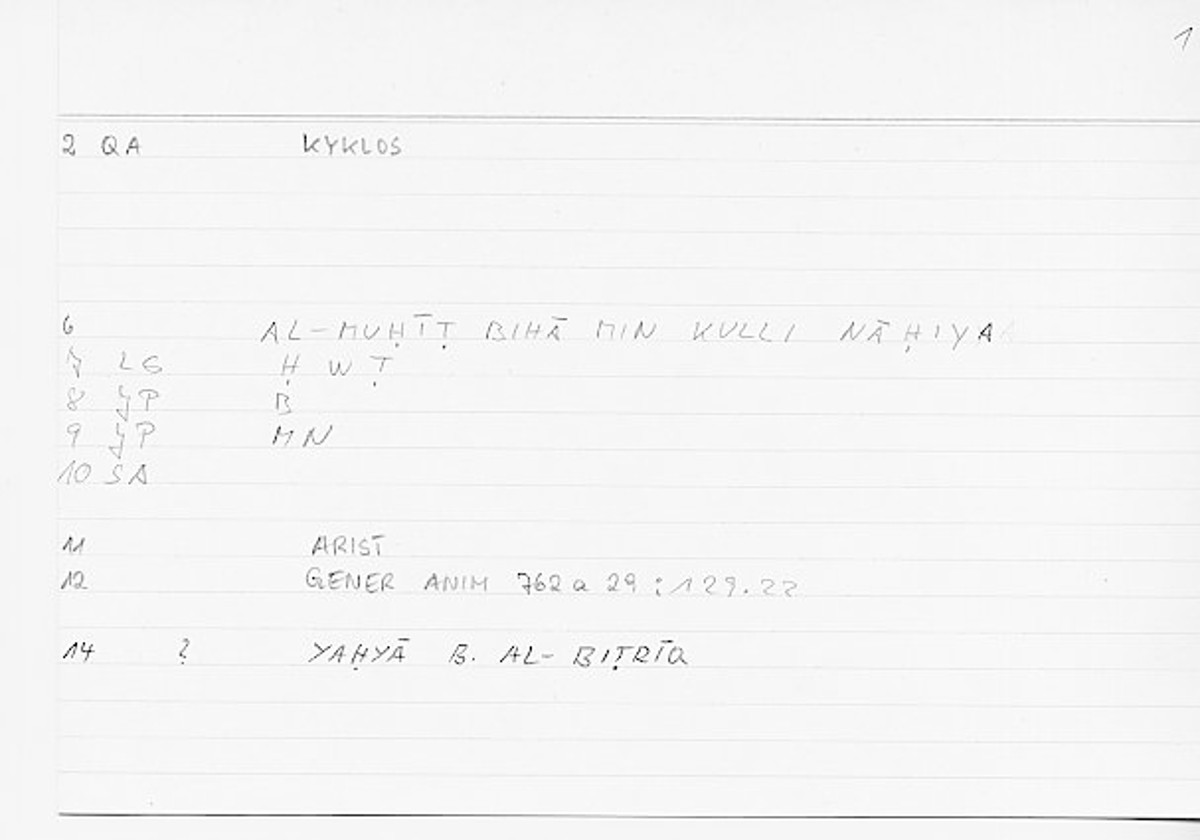 1
2 QA KYKLOS
6 AL-MUḤĪṬ BIHĀ MIN KULLI NĀḤIYA
7 LG Ḥ W Ṭ
8 JP B
9 JP MN
10 SA
11 ARIST
12 GENER ANIM 762a 29 : 129.22
14 ? YAḤYĀ B. AL-BIṬRĪQ